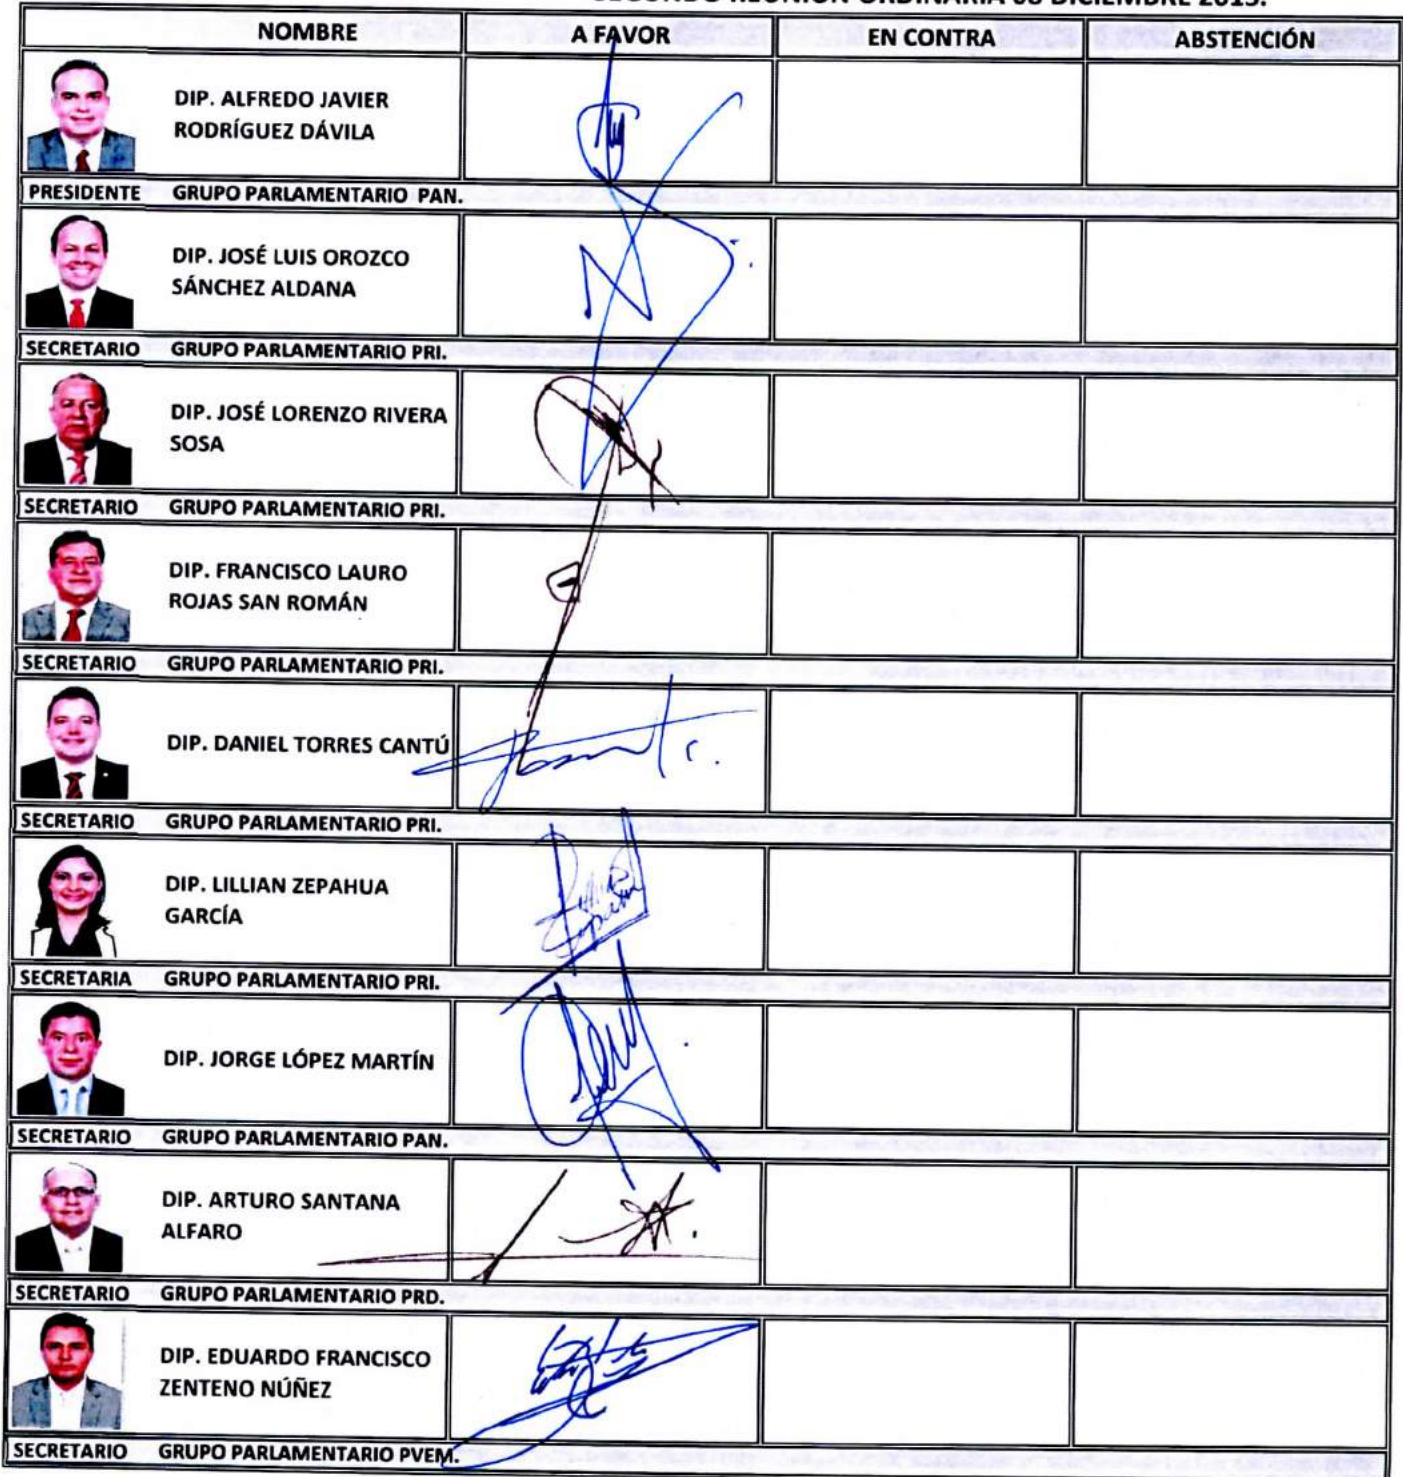 SEGUNDO REUNIÓN ORDINARIA 08 DICIEMBRE 2015.
NOMBRE A FAVOR EN CONTRA ABSTENCIÓN
DIP. ALFREDO JAVIER
RODRÍGUEZ DÁVILA
PRESIDENTE GRUPO PARLAMENTARIO PAN.
DIP. JOSÉ LUIS OROZCO
SÁNCHEZ ALDANA
SECRETARIO GRUPO PARLAMENTARIO PRI.
DIP. JOSÉ LORENZO RIVERA
SOSA
SECRETARIO GRUPO PARLAMENTARIO PRI.
DIP. FRANCISCO LAURO
ROJAS SAN ROMÁN
SECRETARIO GRUPO PARLAMENTARIO PRI.
DIP. DANIEL TORRES CANTÚ
SECRETARIO GRUPO PARLAMENTARIO PRI.
DIP. LILLIAN ZEPAHUA
GARCÍA
SECRETARIA GRUPO PARLAMENTARIO PRI.
DIP. JORGE LÓPEZ MARTÍN
SECRETARIO GRUPO PARLAMENTARIO PAN.
DIP. ARTURO SANTANA
ALFARO
SECRETARIO GRUPO PARLAMENTARIO PRD.
DIP. EDUARDO FRANCISCO
ZENTENO NÚÑEZ
SECRETARIO GRUPO PARLAMENTARIO PVEM.